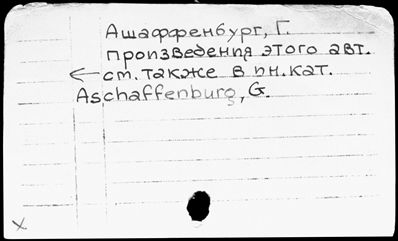 Ашаффенбург, Г.
Произведения этого авт.
← см. также в ин. кат.
Aschaffenburg, G.
X